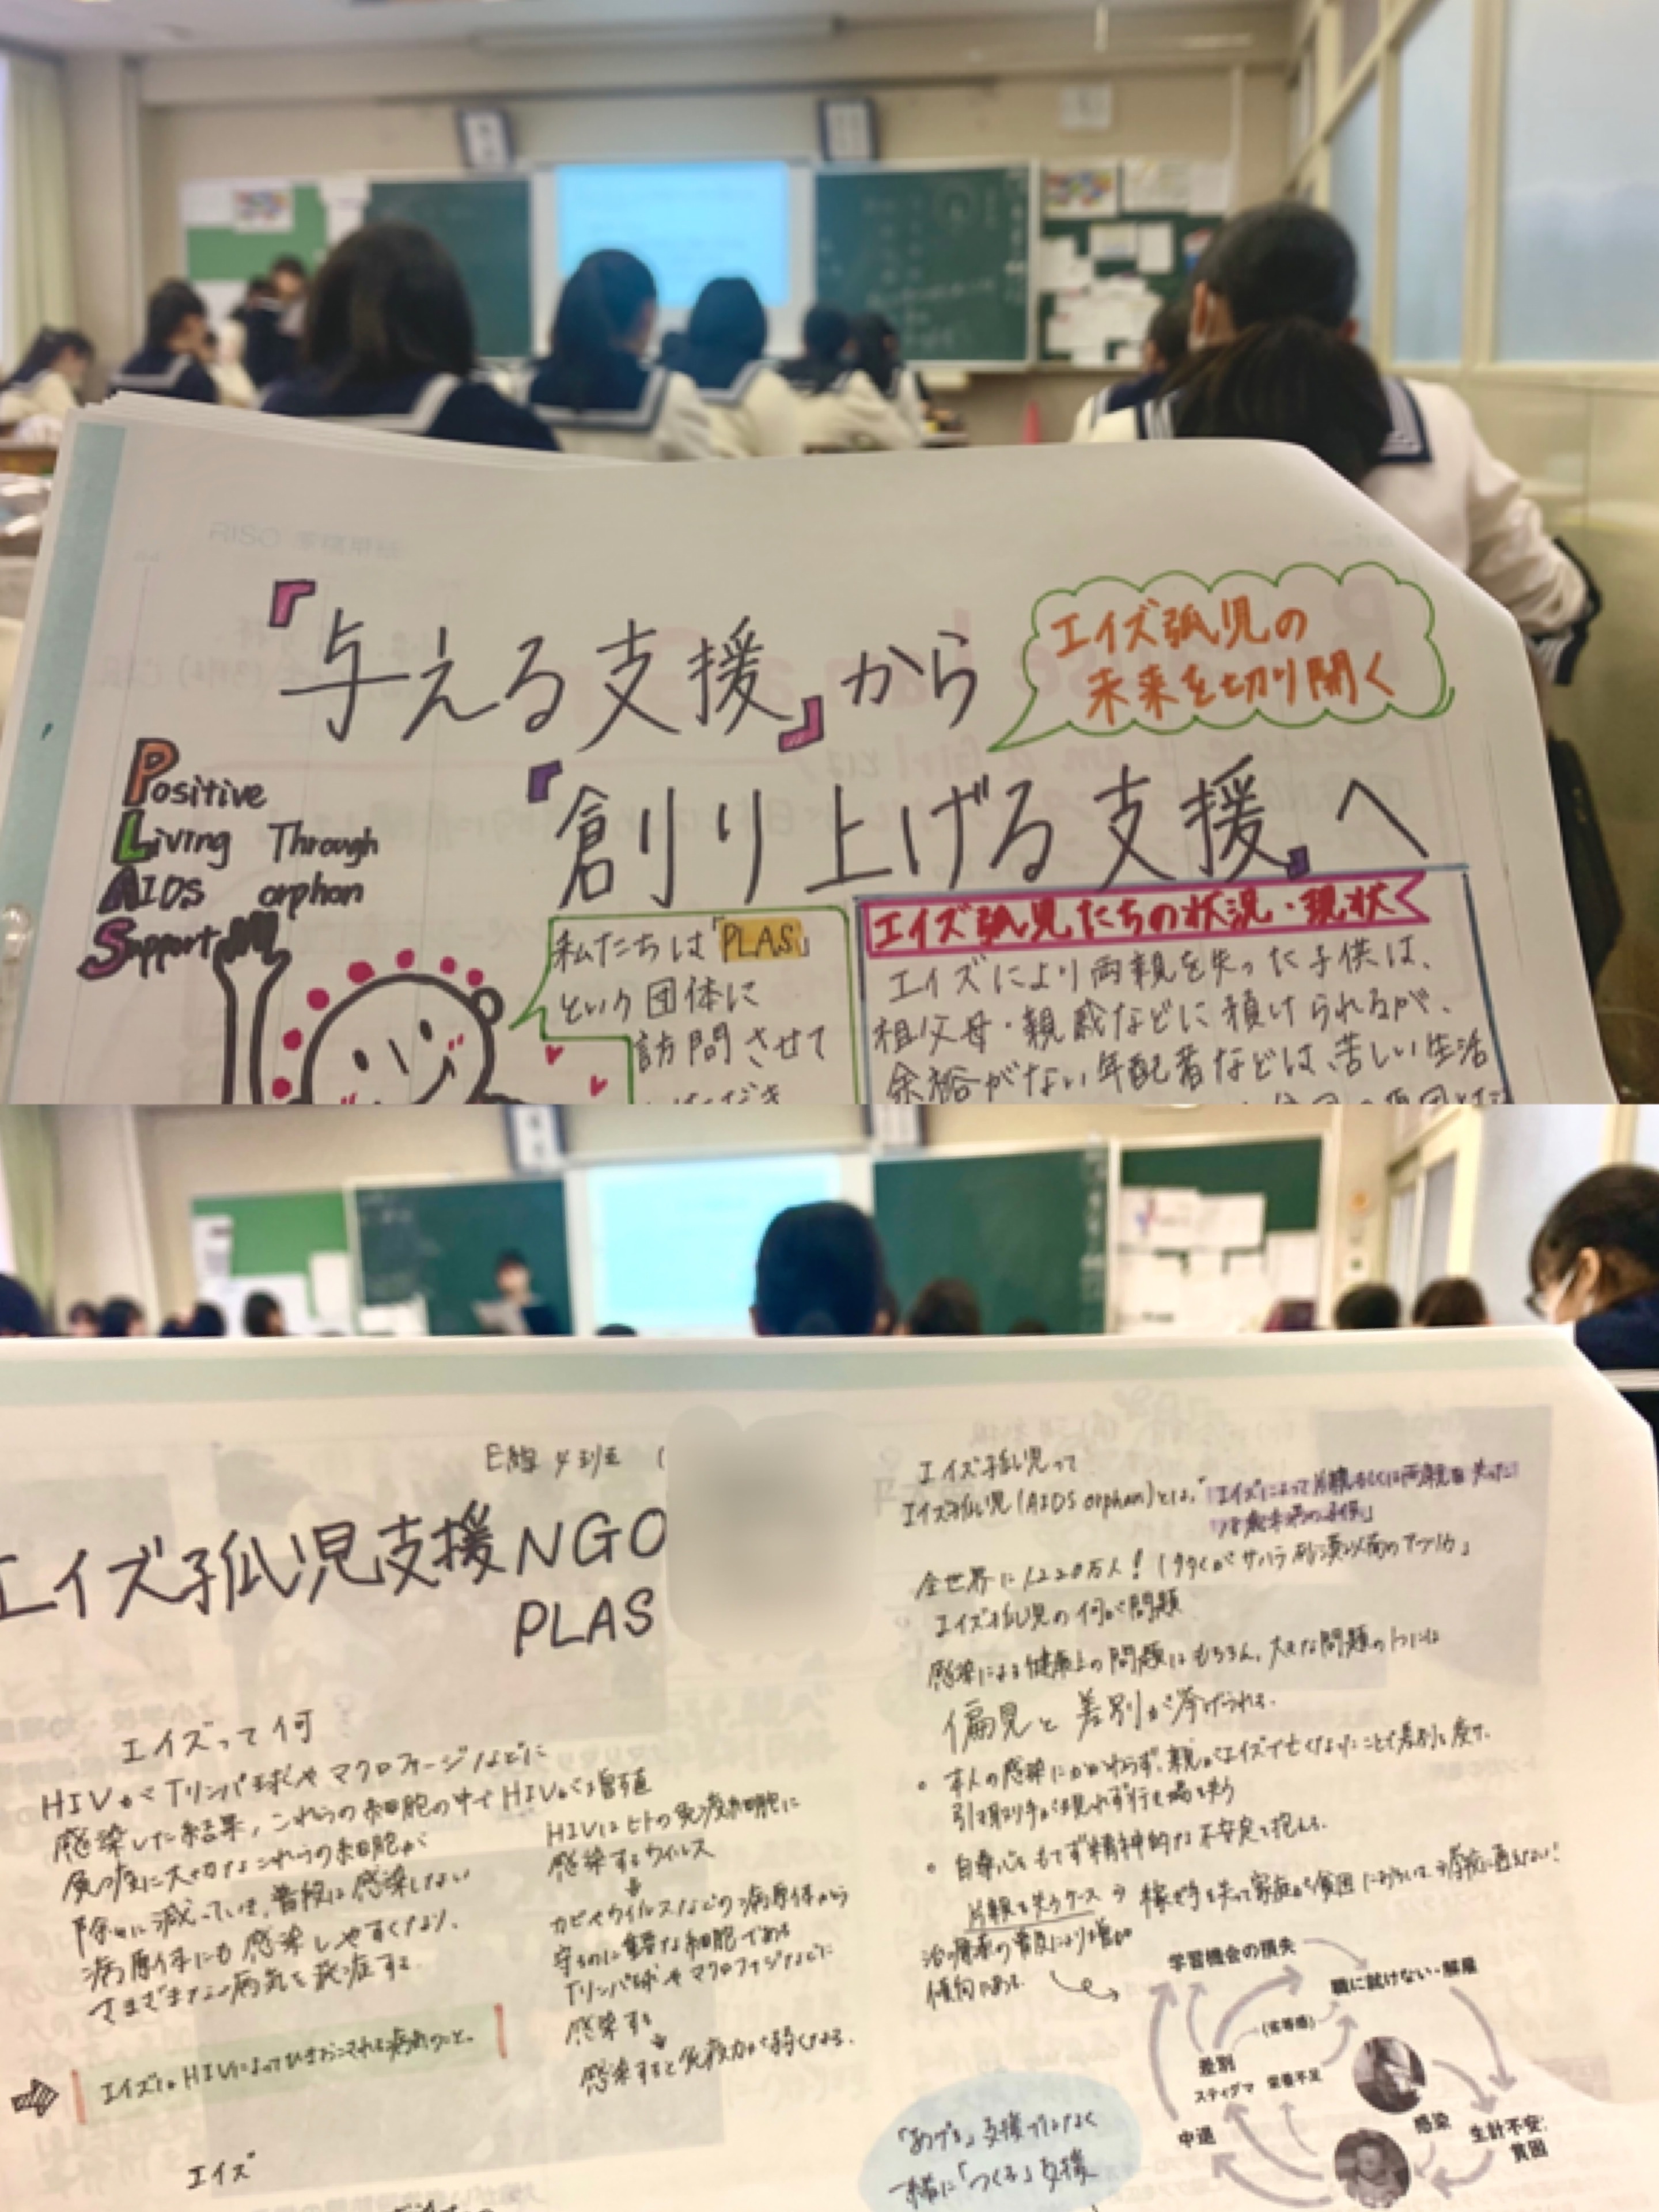 『与える支援』から
エイズ孤児の
未来を切り開く
『創り上げる支援』へ
Positive
Living Through
AIDS orphan
Support
私たちは「PLAS」
という団体に
訪問させて
いただき
エイズ孤児たちの状況・現状
エイズにより両親を失った子供は、
祖父母・親戚などに預けられるが、
余裕がない年配者などは、苦しい生活
E組 4班 (
エイズ孤児支援NGO
PLAS
エイズって何
HIVがTリンパ球やマクロファージなどに
感染した結果、これらの細胞の中でHIVが増殖
免疫に大切なこれらの細胞が
除々に減っていき、普段は感染しない
病原体にも感染しやすくなり、
さまざまな病気を発症する。
エイズは、HIVによってひきおこされる病気のこと。
エイズ
HIVはヒトの免疫細胞に
感染するウイルス
カビやウイルスなどの病原体から
守るのに重要な細胞である
Tリンパ球やマクロファジなどに
感染する
感染すると免疫力が弱くなる。
エイズ孤児って
エイズ孤児(AIDS orphan)とは、「エイズによって片親もしくは両親を失った
18歳未満の子供」
全世界に1220万人! 「多くがサハラ砂漠以南のアフリカ」
エイズ孤児の何が問題
感染による健康上の問題はもちろん、大きな問題の1つには
偏見と差別が挙げられる。
• 本人の感染にかかわらず、親がエイズで亡くなったことで差別を度け、
引き取り手が現れず行き場を失う
• 自尊心をもてず精神的な不安定を抱える。
片親を失うケース→稼ぎ手を失って家庭が貧困におちいって→学校に通えない!
治療薬の普及により増加
傾向にある。
学習機会の損失
職に就けない・解雇
(劣等感)
差別
スティグマ 栄養不足
中退
感染
生計不安・
貧困
「あげる」支援ではなく
一緒に「つくる」支援